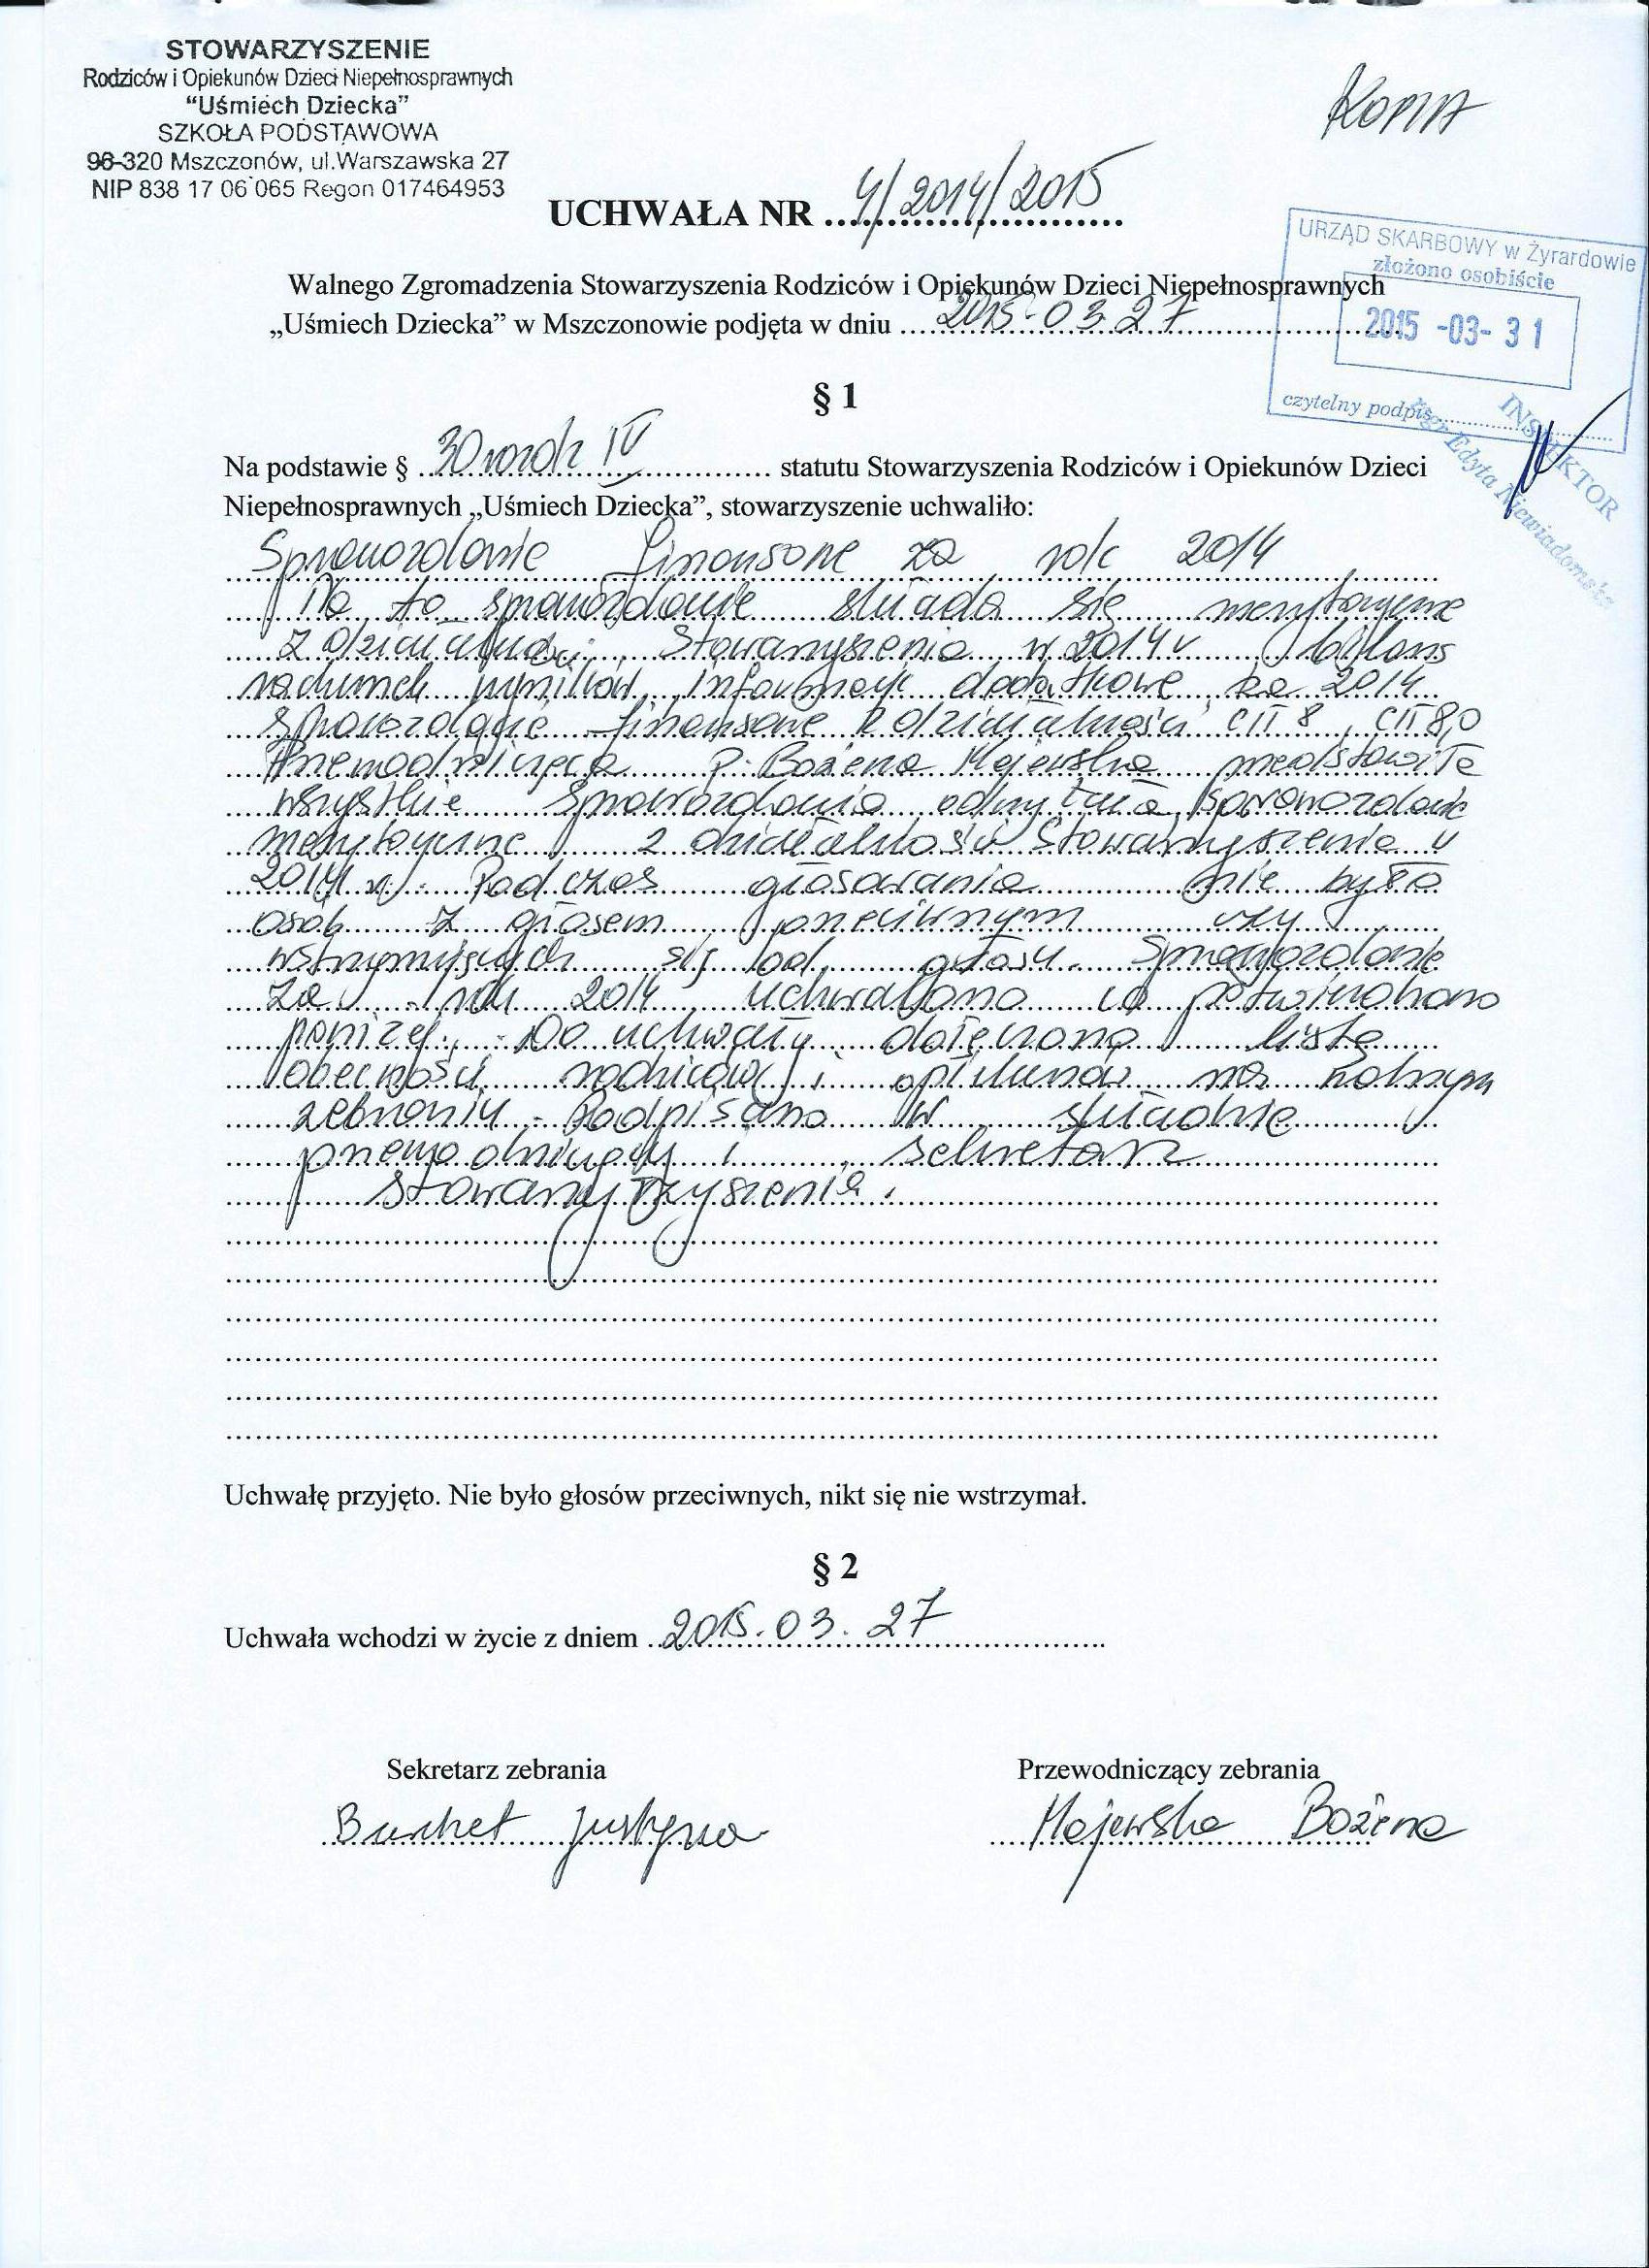 STOWARZYSZENIE
Rodziców i Opiekunów Dzieci Niepełnosprawnych
"Uśmiech Dziecka"
SZKOŁA PODSTAWOWA
96-320 Mszczonów, ul.Warszawska 27
NIP 838 17 06 065 Regon 017464953
KOPIA
UCHWAŁA NR 4/2014/2015
URZĄD SKARBOWY w Żyrardowie
złożono osobiście
2015 -03- 31
czytelny podpis
INSPEKTOR
mgr Edyta Niewiadomska
Walnego Zgromadzenia Stowarzyszenia Rodziców i Opiekunów Dzieci Niepełnosprawnych
„Uśmiech Dziecka” w Mszczonowie podjęta w dniu 2015-03 27
§ 1
Na podstawie § 30 IV statutu Stowarzyszenia Rodziców i Opiekunów Dzieci
Niepełnosprawnych „Uśmiech Dziecka”, stowarzyszenie uchwaliło:
Sprawozdanie finansowe za rok 2014
Na to sprawozdanie składa się merytoryczne
z działalności Stowarzyszenia w 2014 r bilans
rachunek wyników, informacje dodatkowe za 2014
sprawozdanie finansowe z działalności CIT 8, CIT 8,0
Przewodnicząca p. Bożena Majewska przedstawiła
wszystkie sprawozdania odczytała sprawozdanie
merytoryczne z działalności Stowarzyszenia w
2014 r. Podczas głosowania nie było
osób z głosem przeciwnym czy
wstrzymujących się od głosu. Sprawozdanie
za rok 2014 uchwalono co potwierdzono
poniżej. Do uchwały dołączono listę
obecności rodziców i opiekunów na walnym
zebraniu. Podpisano w składzie
przewodniczący i sekretarz
stowarzyszenia.
Uchwałę przyjęto. Nie było głosów przeciwnych, nikt się nie wstrzymał.
§ 2
Uchwała wchodzi w życie z dniem 2015.03.27
Sekretarz zebrania
Przewodniczący zebrania
Justyna
Majewska Bożena